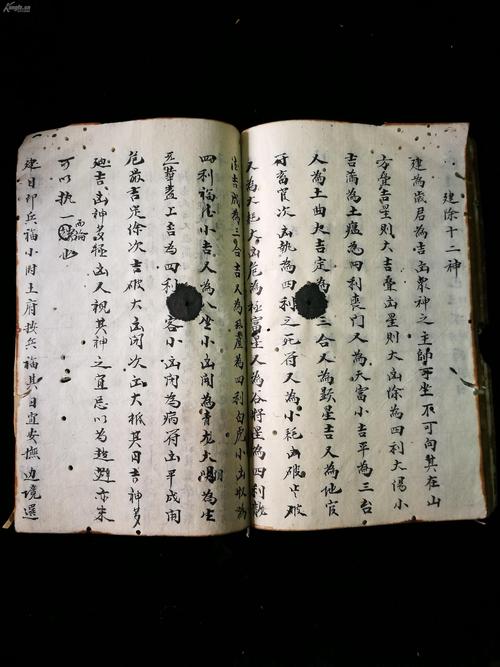 建除十二神
建為歲君為吉凶衆神之主帥可坐不可向其在山
方疊吉星則大吉疊凶星則大凶除為四利太陽小
吉滿為土瘟為四利喪門又為天富小吉平為三台
又為土曲大吉定為三合又為顯星吉又為地官
符畜官次凶執為四利之死符又為小耗凶破為破
又為大耗大凶危為極富星又為谷將星為四利龍
吉成為三合吉又為飛廉為四利白虎小凶收為
四利福德小吉又為八坐小凶開為青龍太陽為生
華蓋上吉為四利客小凶閉為病符凶平成開
危最吉定除次吉破大凶閉次凶大抵其日吉神多
廸吉凶神多極凶又視其神之宜忌以為趨避亦未
可以执一而論也
建日即兵福小时土府按兵福其日宜安撫边境選